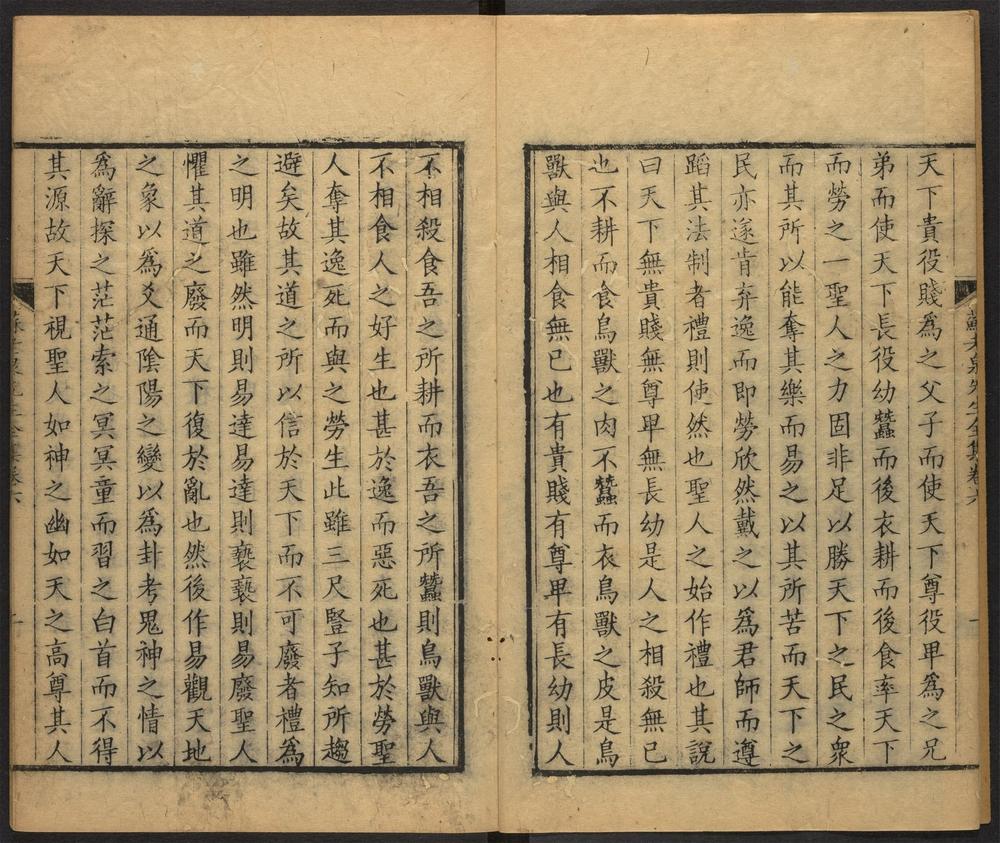 蘇老泉先生全集卷六
一
天下貴役賤爲之父子而使天下尊役卑爲之兄
弟而使天下長役幼蠶而後衣耕而後食率天下
而勞之一聖人之力固非足以勝天下之民之衆
而其所以能奪其樂而易之以其所苦而天下之
民亦遂肯弃逸而即勞欣然戴之以爲君師而遵
蹈其法制者禮則使然也聖人之始作禮也其說
曰天下無貴賤無尊卑無長幼是人之相殺無已
也不耕而食鳥獸之肉不蠶而衣鳥獸之皮是鳥
獸與人相食無已也有貴賤有尊卑有長幼則人
不相殺食吾之所耕而衣吾之所蠶則鳥獸與人
不相食人之好生也甚於逸而惡死也甚於勞聖
人奪其逸死而與之勞生此雖三尺豎子知所趨
避矣故其道之所以信於天下而不可廢者禮爲
之明也雖然明則易達易達則褻褻則易廢聖人
懼其道之廢而天下復於亂也然後作易觀天地
之象以爲爻通陰陽之變以爲卦考鬼神之情以
爲辭探之茫茫索之冥冥童而習之白首而不得
其源故天下視聖人如神之幽如天之高尊其人